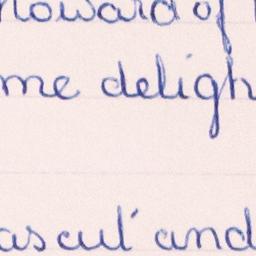 howard of
me deligh
ascut' and